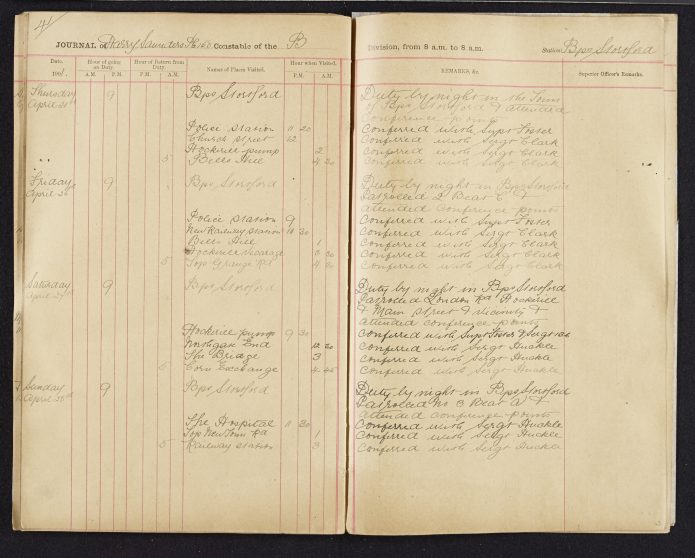 41
JOURNAL of Harry Saunders PC 160 Constable of the B Division, from 8 a.m. to 8 a.m. Station Bps Stortford
Date. Hour of going on Duty. Hour of Return from Duty. Names of Places Visited. Hour when Visited. REMARKS, &c. Superior Officer's Remarks.
190 A.M. P.M. A.M. P.M. P.M. A.M.
Thursday 9 Bps Stortford Duty by night in the Town
April of Bps Stortford & attended
conference points
Police Station 11 20 Conferred with Supt Foster
Church Street 12 Conferred with Sergt Clark
Hockerill pump 2 Conferred with Sergt Clark
5 Bells Hill 4 20 Conferred with Sergt Clark
Friday 9 Bps Stortford Duty by night in Bps Stortford
April Patrolled 2 Beat &
attended conference points
Police Station 9 Conferred with Supt Foster
New Railway Station 11 30 Conferred with Sergt Clark
Bells Hill 1 Conferred with Sergt Clark
Hockerill Vicarage 3 Conferred with Sergt Clark
5 Top Grange Rd 4 Conferred with Sergt Clark
Saturday 9 Bps Stortford Duty by night in Bps Stortford
April 27th Patrolled London Rd Hockerill
& Main Street & vicinity &
attended conference points
Hockerill pump 9 30 Conferred with Supt Foster & Sergt
Northgate End 12 20 Conferred with Sergt Huckle
The Bridge 3 Conferred with Sergt Huckle
5 Corn Exchange 4 45 Conferred with Sergt Huckle
Sunday 9 Bps Stortford Duty by night in Bps Stortford
April 28th Patrolled No Beat &
attended conference points
The Hospital 11 30 Conferred with Sergt Huckle
Top New Town Rd 1 Conferred with Sergt Huckle
5 Railway Station 3 Conferred with Sergt Huckle